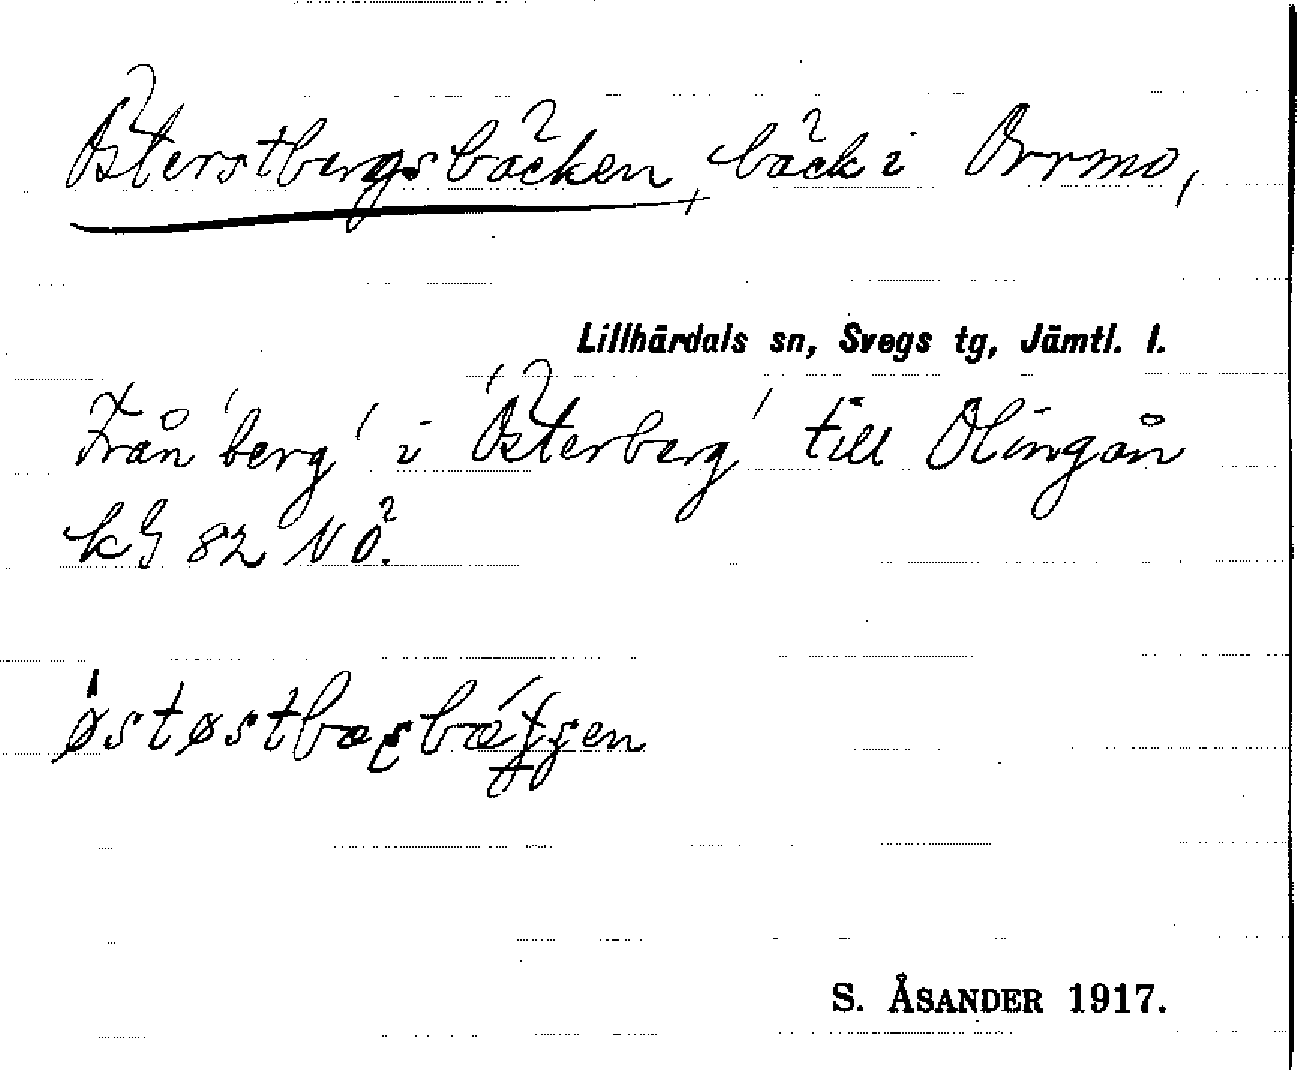 Österstbergsbäcken, bäck i Orrmo,
Lillhärdals sn, Svegs tg, Jämtl. l.
Från 'berg' i 'Österberg' till Olingån
kG 82 NÖ.
S. ÅSANDER 1917.